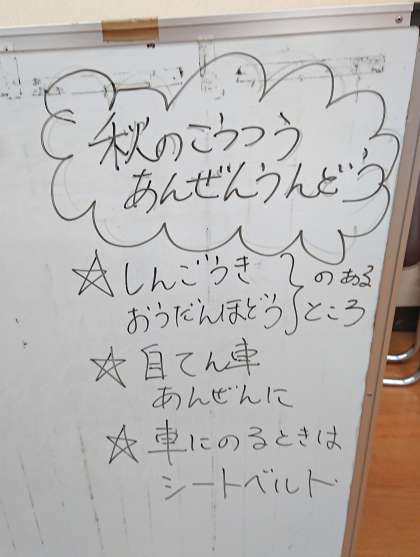 秋のこうつう
あんぜんうんどう
☆しんごうき
おうだんほどう}のあるところ
☆自てん車
あんぜんに
☆車にのるときは
シートベルト